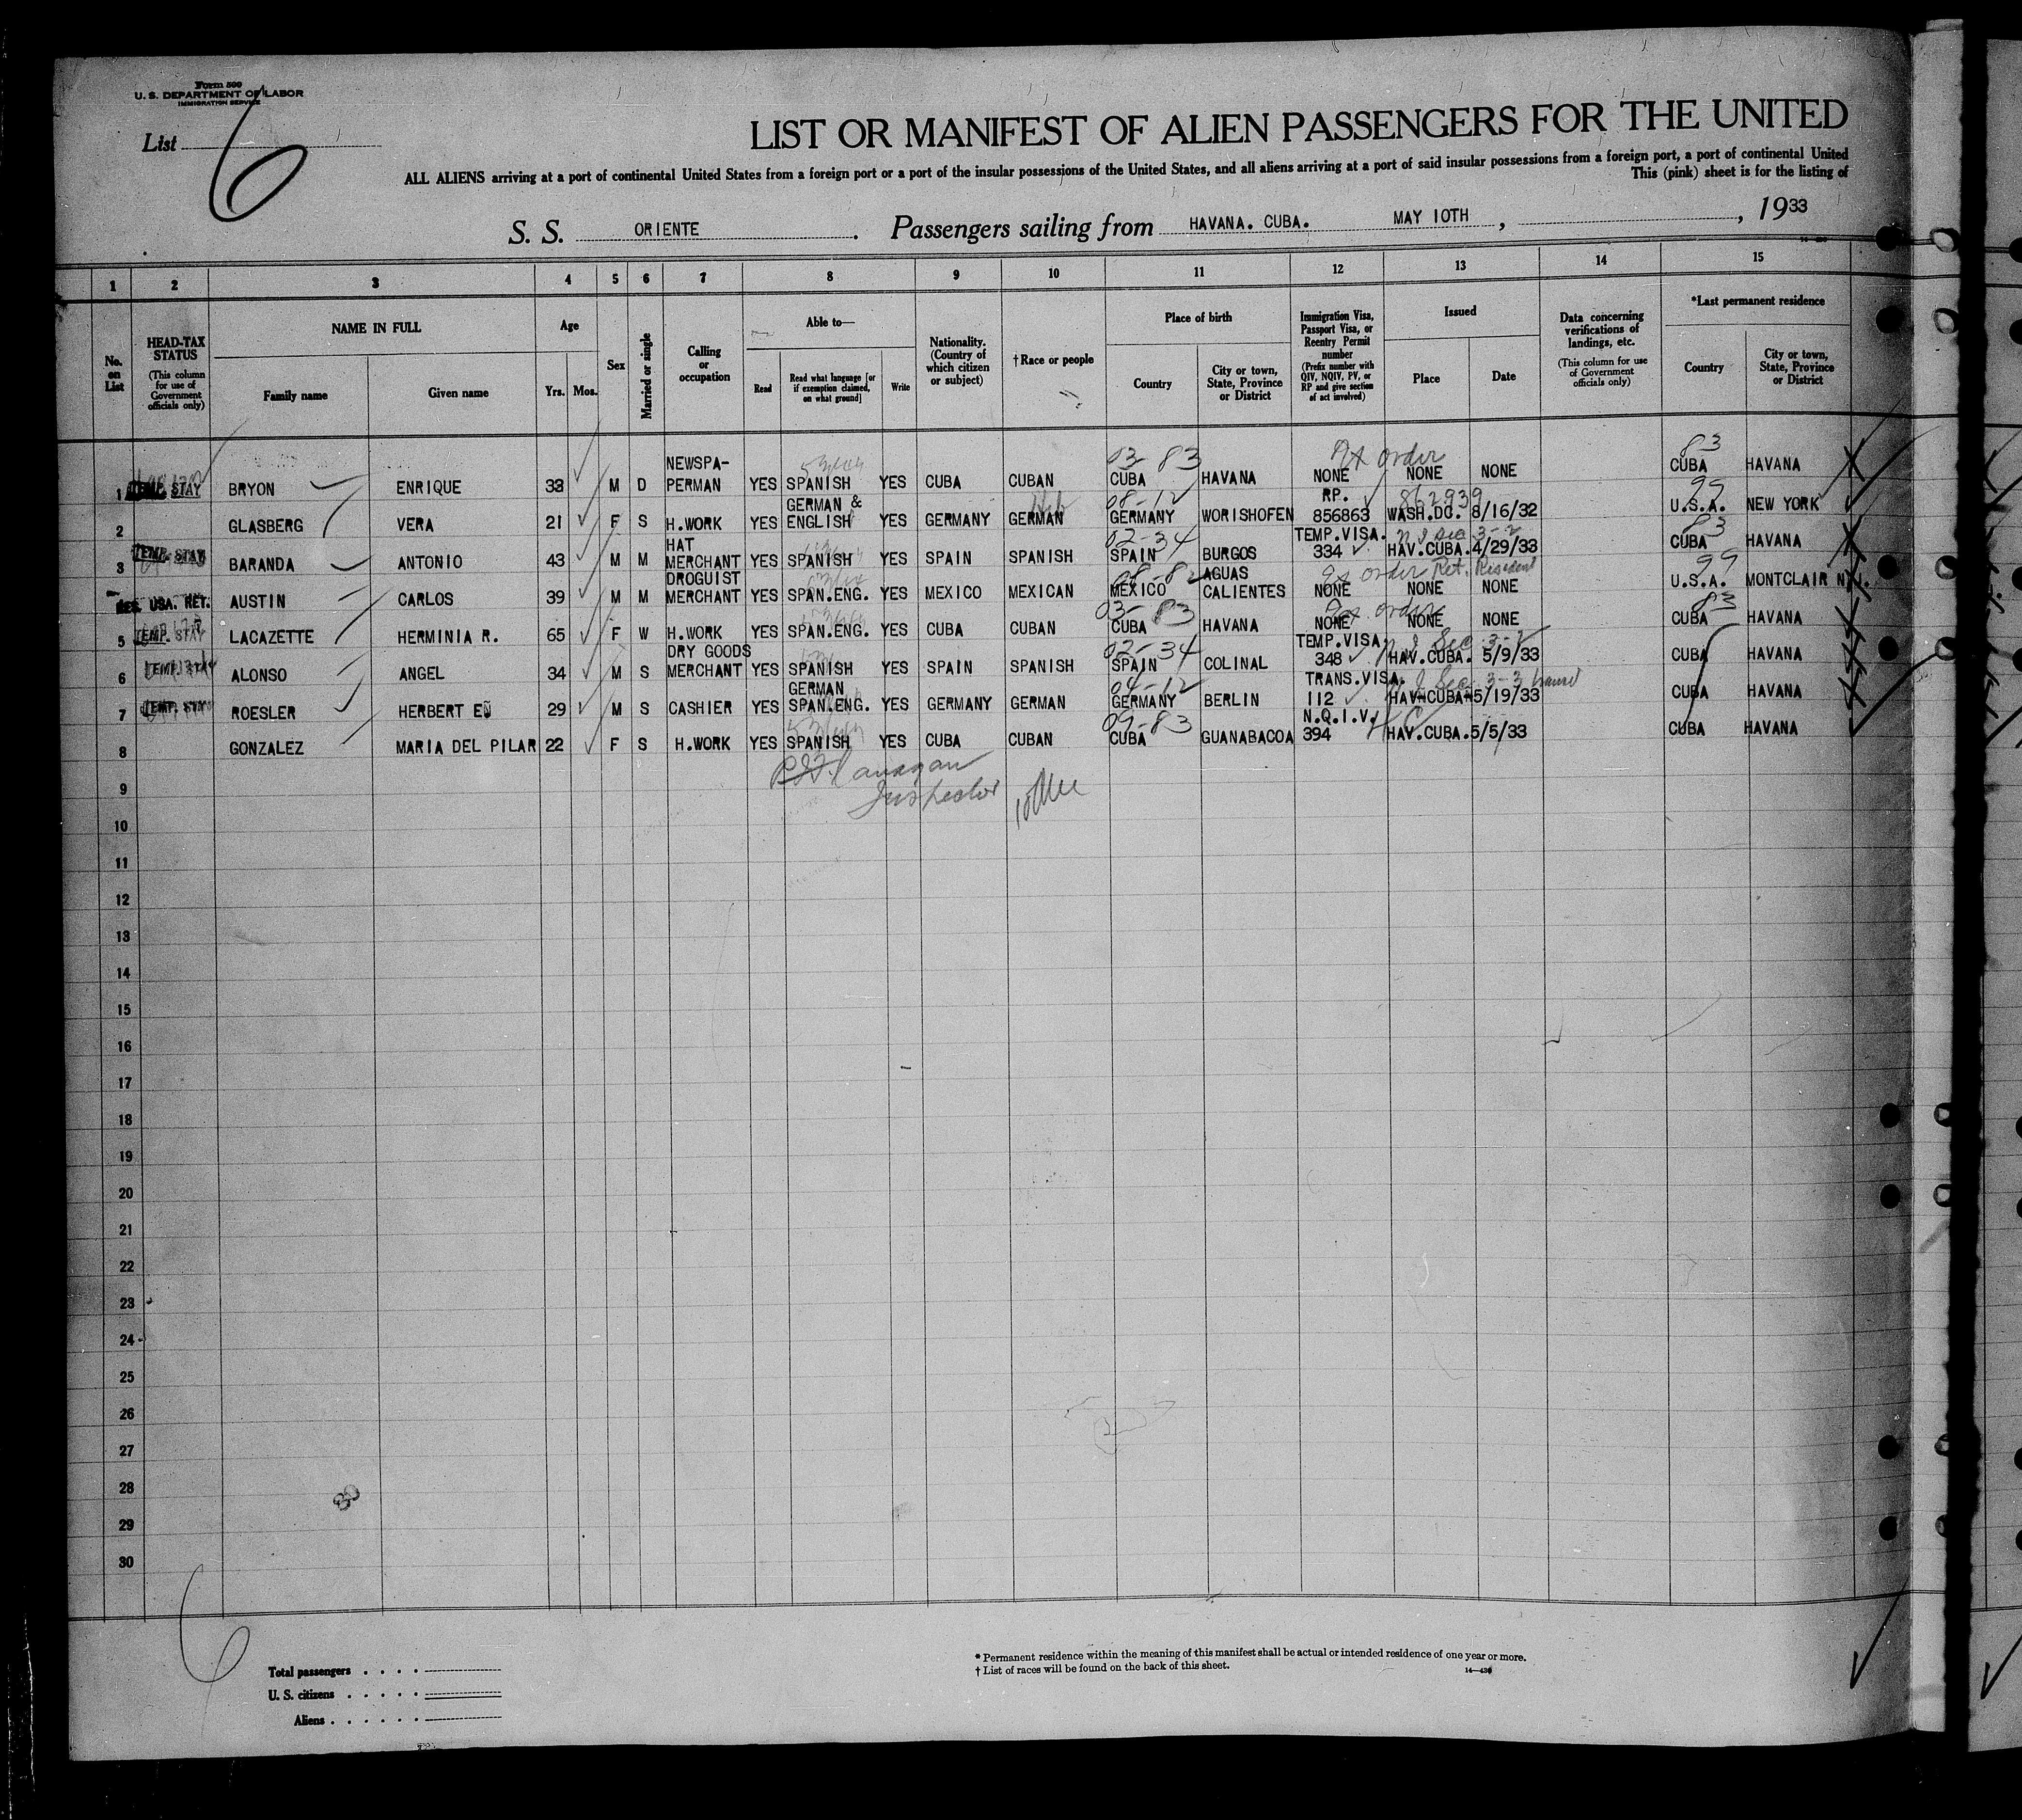 Form 500
U. S. DEPARTMENT OF LABOR
IMMIGRATION SERVICE
List 6
LIST OR MANIFEST OF ALIEN PASSENGERS FOR THE UNITED
ALL ALIENS arriving at a port of continental United States from a foreign port or a port of the insular possessions of the United States, and all aliens arriving at a port of said insular possessions from a foreign port, a port of continental United
This (pink) sheet is for the listing of
S. S. ORIENTE. Passengers sailing from HAVANA. CUBA. MAY 10TH, , 1933
1 2 3 4 5 6 7 8 9 10 11 12 13 14 15
No. on List
HEAD-TAX STATUS (This column for use of Government officials only)
NAME IN FULL
Family name Given name
Age
Yrs. Mos.
Sex
Married or single
Calling or occupation
Able to—
Read Read what language [or if exemption claimed, on what ground] Write
Nationality. (Country of which citizen or subject)
†Race or people
Place of birth
Country City or town, State, Province or District
Immigration Visa, Passport Visa, or Reentry Permit number (Prefix number with QIV, NQIV, PV, or RP and give section of act involved)
Issued
Place Date
Data concerning verifications of landings, etc. (This column for use of Government officials only)
*Last permanent residence
Country City or town, State, Province or District
1 TEMP. STAY BRYON ENRIQUE 33 M D NEWSPA-PERMAN YES SPANISH YES CUBA CUBAN 03-83 CUBA HAVANA order NONE NONE NONE 83 CUBA HAVANA
2 GLASBERG VERA 21 F S H.WORK YES GERMAN & ENGLISH YES GERMANY GERMAN Heb 08-12 GERMANY WORISHOFEN RP. 856863 862939 WASH.DC. 8/16/32 99 U.S.A. NEW YORK
3 TEMP. STAY BARANDA ANTONIO 43 M M HAT MERCHANT YES SPANISH YES SPAIN SPANISH 02-34 SPAIN BURGOS TEMP.VISA. 334 Sec 3-2 HAV.CUBA. 4/29/33 83 CUBA HAVANA
RES. USA. RET. AUSTIN CARLOS 39 M M DROGUIST MERCHANT YES SPAN.ENG. YES MEXICO MEXICAN 08-82 MEXICO AGUAS CALIENTES order Ret. Resident NONE NONE NONE 99 U.S.A. MONTCLAIR N.J.
5 TEMP. STAY LACAZETTE HERMINIA R. 65 F W H.WORK YES SPAN.ENG. YES CUBA CUBAN 03-83 CUBA HAVANA order NONE NONE NONE 83 CUBA HAVANA
6 TEMP. STAY ALONSO ANGEL 34 M S DRY GOODS MERCHANT YES SPANISH YES SPAIN SPANISH 02-34 SPAIN COLINAL TEMP.VISA. 348 Sec 3-2 HAV.CUBA. 5/9/33 CUBA HAVANA
7 TEMP. STAY ROESLER HERBERT E 29 M S CASHIER YES GERMAN SPAN.ENG. YES GERMANY GERMAN 04-12 GERMANY BERLIN TRANS.VISA. 112 Sec 3-3 HAV-CUBA-5/19/33 CUBA HAVANA
8 GONZALEZ MARIA DEL PILAR 22 F S H.WORK YES SPANISH YES CUBA CUBAN 09-83 CUBA GUANABACOA N.Q.I.V. 394 HAV.CUBA. 5/5/33 CUBA HAVANA
Flanagan
Inspector
9
10
11
12
13
14
15
16
17
18
19
20
21
22
23
24
25
26
27
28
29
30
6
Total passengers
U. S. citizens
Aliens
* Permanent residence within the meaning of this manifest shall be actual or intended residence of one year or more.
† List of races will be found on the back of this sheet.
14—430